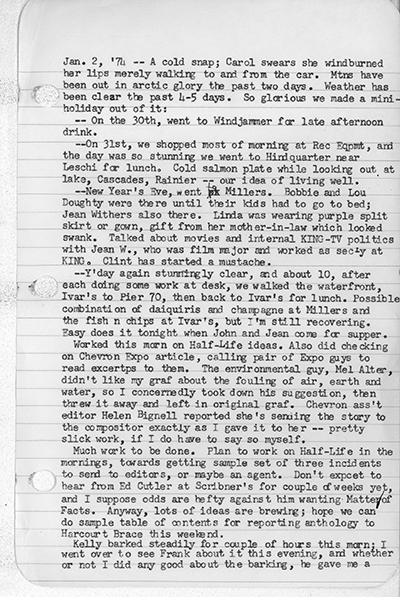 Jan. 2, '74 -- A cold snap; Carol swears she windburned
her lips merely walking to and from the car. Mtns have
been out in arctic glory the past two days. Weather has
been clear the past 4-5 days. So glorious we made a mini-
holiday out of it:
-- On the 30th, went to Windjammer for late afternoon
drink.
--On 31st, we shopped most of morning at Rec Eqpmt, and
the day was so stunning we went to Hindquarter near
Leschi for lunch. Cold salmon plate while looking out at
lake, Cascades, Rainier -- our idea of living well.
--New Year's Eve, went to Millers. Bobbie and Lou
Doughty were there until their kids had to go to bed;
Jean Withers also there. Linda was wearing purple split
skirt or gown, gift from her mother-in-law which looked
swank. Talked about movies and internal KING-TV politics
with Jean W., who was film major and worked as sec-y at
KING. Clint has started a mustache.
--Y'day again stunningly clear, and about 10, after
each doing some work at desk, we walked the waterfront,
Ivar's to Pier 70, then back to Ivar's for lunch. Possible
combination of daiquiris and champagne at Millers and
the fish n chips at Ivar's, but I'm still recovering.
Easy does it tonight when John and Jean come for supper.
Worked this morn on Half-Life ideas. Also did checking
on Chevron Expo article, calling pair of Expo guys to
read excertps to them. The environmental guy, Mel Alter,
didn't like my graf about the fouling of air, earth and
water, so I concernedly took down his suggestion, then
threw it away and left in original graf. Chevron ass't
editor Helen Bignell reported she's sening the story to
the compositor exactly as I gave it to her -- pretty
slick work, if I do have to say so myself.
Much work to be done. Plan to work on Half-Life in the
mornings, towards getting sample set of three incidents
to send to editors, or maybe an agent. Don't expcet to
hear from Ed Cutler at Scribner's for couple of weeks yet,
and I suppose odds are hefty against him wanting Matter of
Facts. Anyway, lots of ideas are brewing; hope we can
do sample table of contents for reporting anthology to
Harcourt Brace this weekend.
Kelly barked steadily for couple of hours this morn; I
went over to see Frank about it this evening, and whether
or not I did any good about the barking, he gave me a